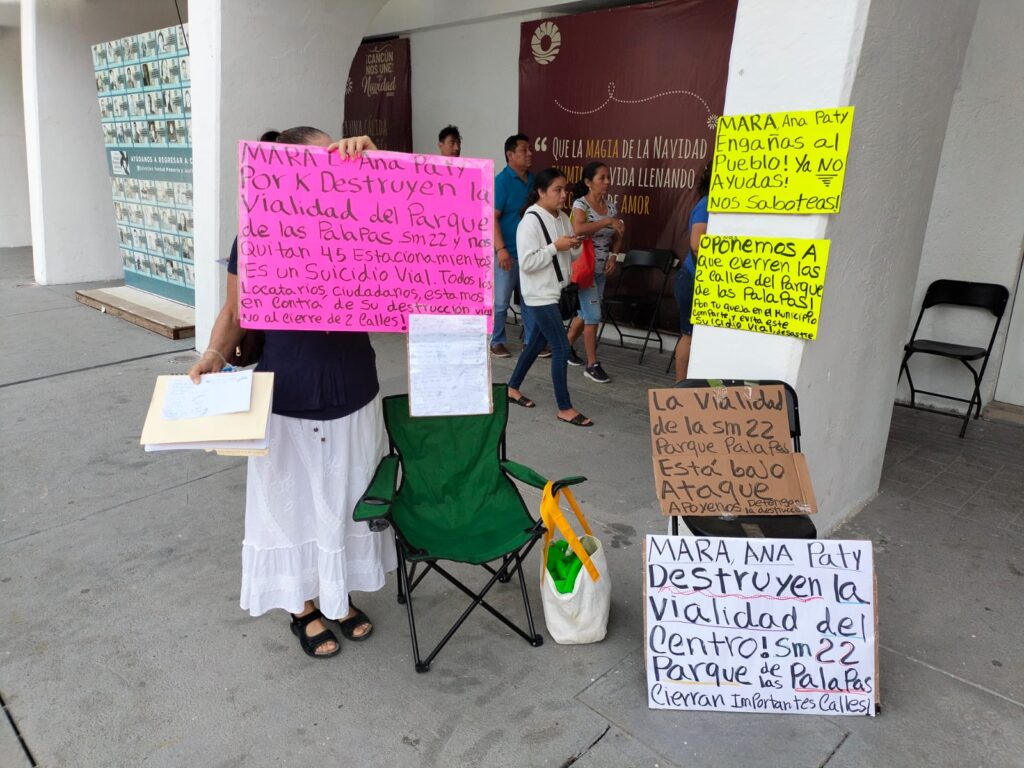 AYÚDANOS A REGRESAR A C
CANCÚN
NOS UNE
Navidad
QUE LA MAGIA DE LA NAVIDAD
VIDA LLENANDO
DE AMOR
MARA Ana Paty
Por K Destruyen la
Vialidad del Parque
de las PalaPas Sm 22 y nos
Quitan 45 Estacionamientos
Es un Suicidio Vial. Todos los
Locatarios, Ciudadanos, estamos
en Contra de Su destrucción vial
No al cierre de 2 Calles!
MARA, Ana Paty
Engañas al
Pueblo! Ya NO
Ayudas!
NOS Saboteas!
OPONEMOS A
Que CIERREN las
2 calles del Parque
de las PALAPAS!
Por Tu queja en el Municipio
Comparte, y evita este
Suicidio vial, desastre
La Vialidad
de la Sm 22
Parque PalaPas
Está bajo
Ataque
APoyenos Detengan
la destrucción
MARA, ANA Paty
Destruyen la
Vialidad del
Centro! Sm 22
Parque de las PalaPas
Cierran Importantes Calles!